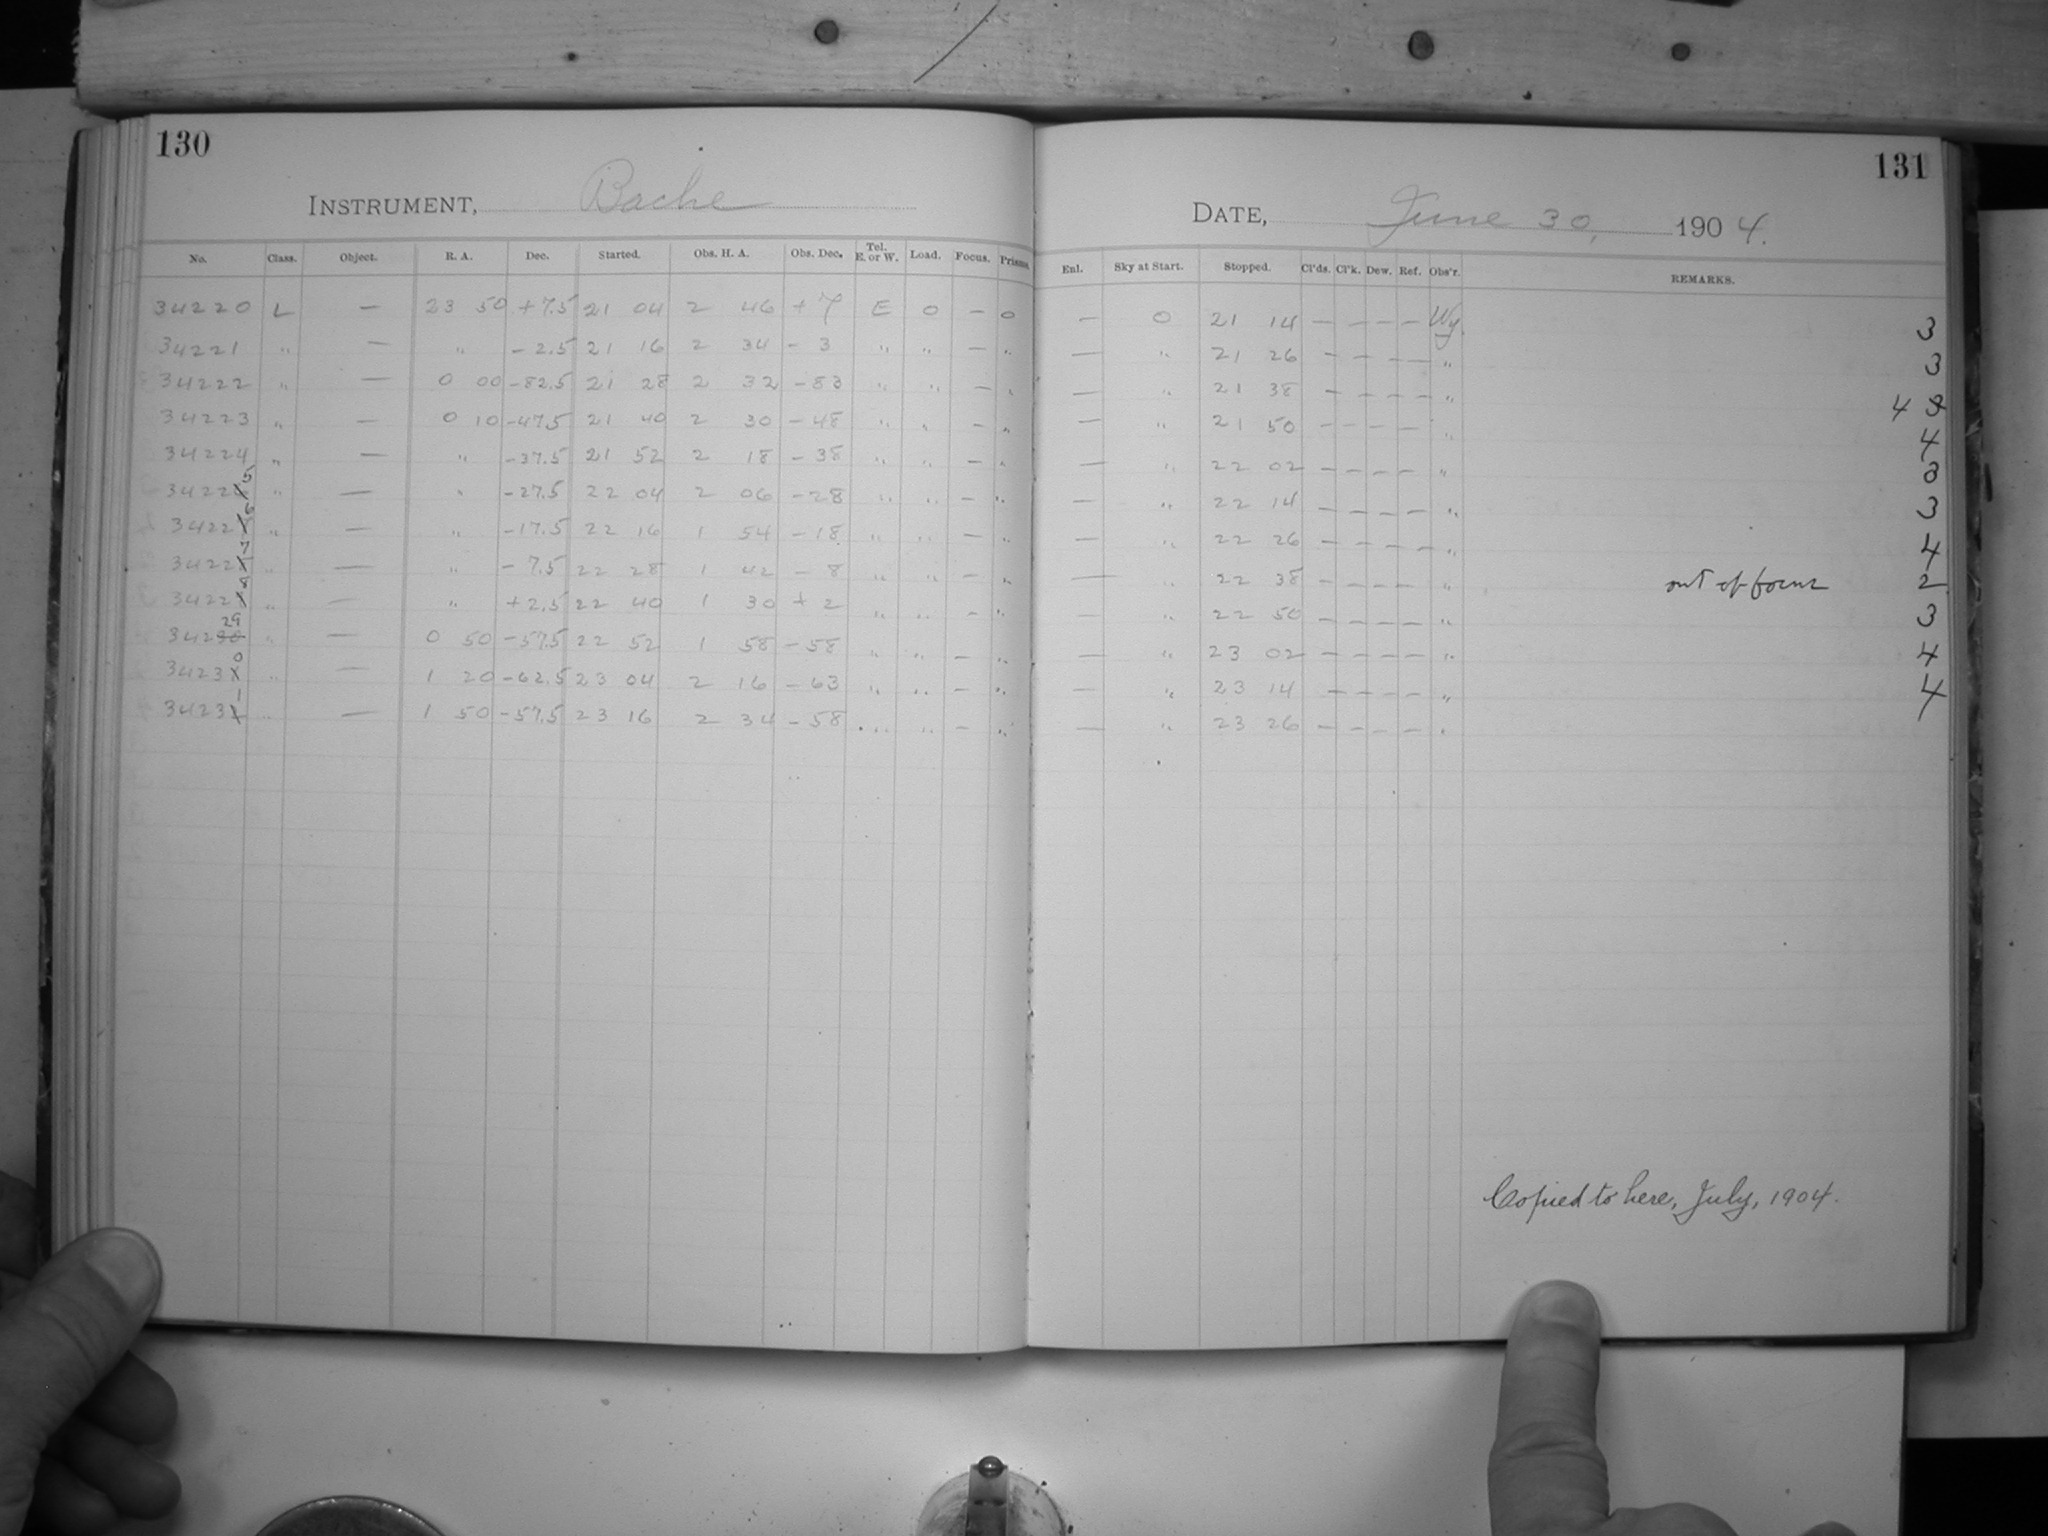 130
INSTRUMENT, Bache
No. Class. Object. R. A. Dec. Started. Obs. H. A. Obs. Dec. Tel. E. or W. Load. Focus. Prisms.
34220 L — 23 50 +7.5 21 04 2 46 +7 E 0 — 0
34221 " — " -2.5 21 16 2 34 -3 " " — "
34222 " — 0 00 -82.5 21 28 2 32 -83 " " — "
34223 " — 0 10 -47.5 21 40 2 30 -48 " " — "
34224 " — " -37.5 21 52 2 18 -38 " " — "
34225 " — " -27.5 22 04 2 06 -28 " " — "
34226 " — " -17.5 22 16 1 54 -18 " " — "
34227 " — " -7.5 22 28 1 42 -8 " " — "
34228 " — " +2.5 22 40 1 30 +2 " " — "
34229 " — 0 50 -57.5 22 52 1 58 -58 " " — "
34230 " — 1 20 -62.5 23 04 2 16 -63 " " — "
34231 " — 1 50 -57.5 23 16 2 34 -58 " " — "
131
DATE, June 30, 1904.
Enl. Sky at Start. Stopped. Cl'ds. Cl'k. Dew. Ref. Obs'r. REMARKS.
— 0 21 14 — — — — Wy. 3
— " 21 26 — — — — " 3
— " 21 38 — — — — " 4
— " 21 50 — — — — " 4
— " 22 02 — — — — " 3
— " 22 14 — — — — " 3
— " 22 26 — — — — " 4
— " 22 38 — — — — " out of focus 2
— " 22 50 — — — — " 3
— " 23 02 — — — — " 4
— " 23 14 — — — — " 4
— " 23 26 — — — — "
Copied to here, July, 1904.